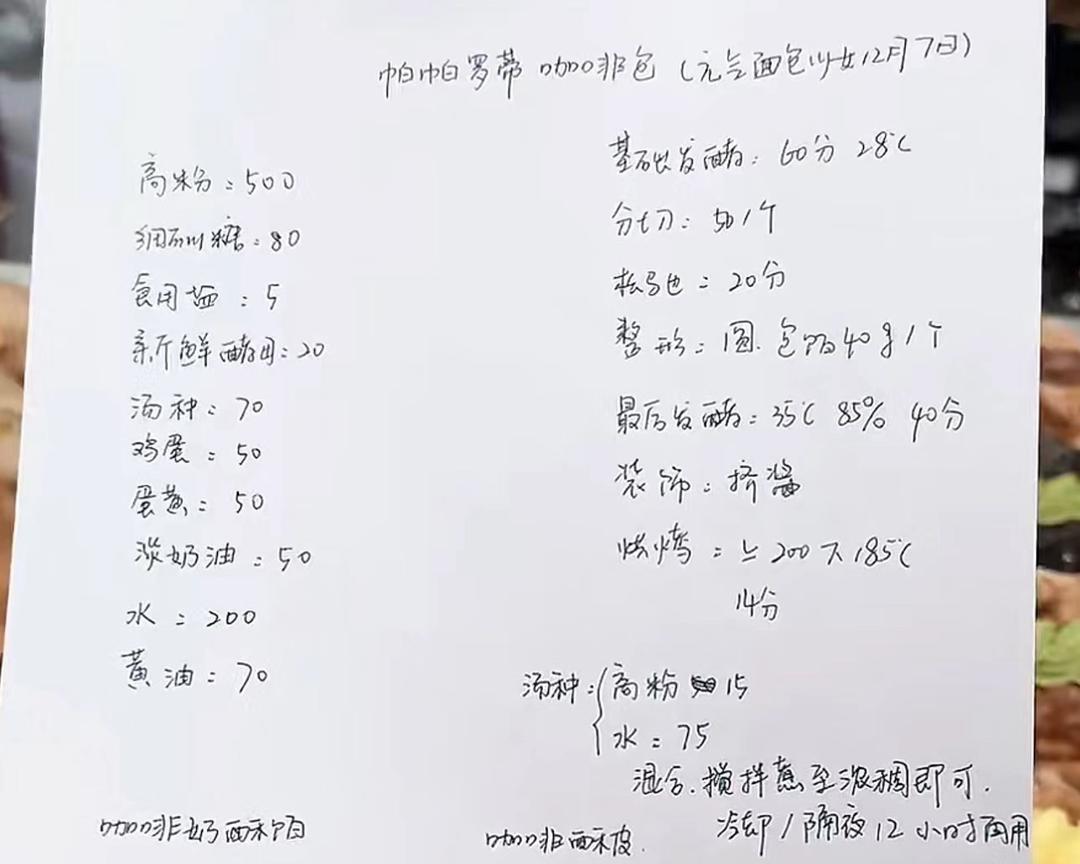 帕帕罗蒂 咖啡包 (元气面包少女12月7日)
高粉:500
细砂糖:80
食用盐:5
新鲜酵母:20
汤种:70
鸡蛋:50
蛋黄:50
淡奶油:50
水:200
黄油:70
基础发酵:60分 28℃
分切:50/个
松弛:20分
整形:圆.包馅40g/个
最后发酵:35℃ 85% 40分
装饰:挤酱
烘烤:上200下185℃
14分
汤种:高粉 15
水:75
混合.搅拌煮至浓稠即可.
冷却/隔夜12小时再用
咖啡奶酥馅
咖啡酥皮.